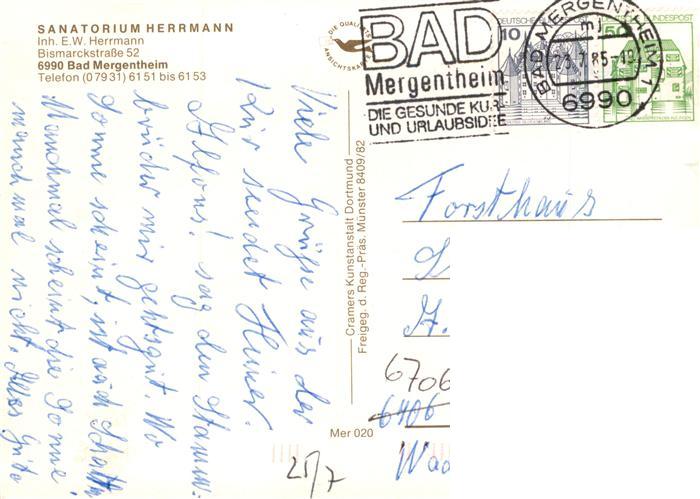 SANATORIUM HERRMANN
Inh. E.W. Herrmann
Bismarckstraße 52
6990 Bad Mergentheim
Telefon (07931) 6151 bis 6153
Viele Grüße aus der
Kur sendet Heiner.
Alfons! sag den Stamm-
brüder mir gehts gut. Wo
Sonne scheint, ist auch Schatten
Manchmal scheint die Sonne
manchmal nicht. Alles Gute
25/7
DIE QUALITÄTS
ANSICHTSKARTE
Cramers Kunstanstalt Dortmund
Freigeg. d. Reg.-Präs. Münster 8409/82
Mer 020
BAD
Mergentheim
DIE GESUNDE KUR-
UND URLAUBSIDEE
BAD MERGENTHEIM 1
mj
23.7.85-19
6990
DEUTSCHE BUNDESPOST
10
DEUTSCHE BUNDESPOST
50
Forsthaus
L
A.
6706
6406
Wac